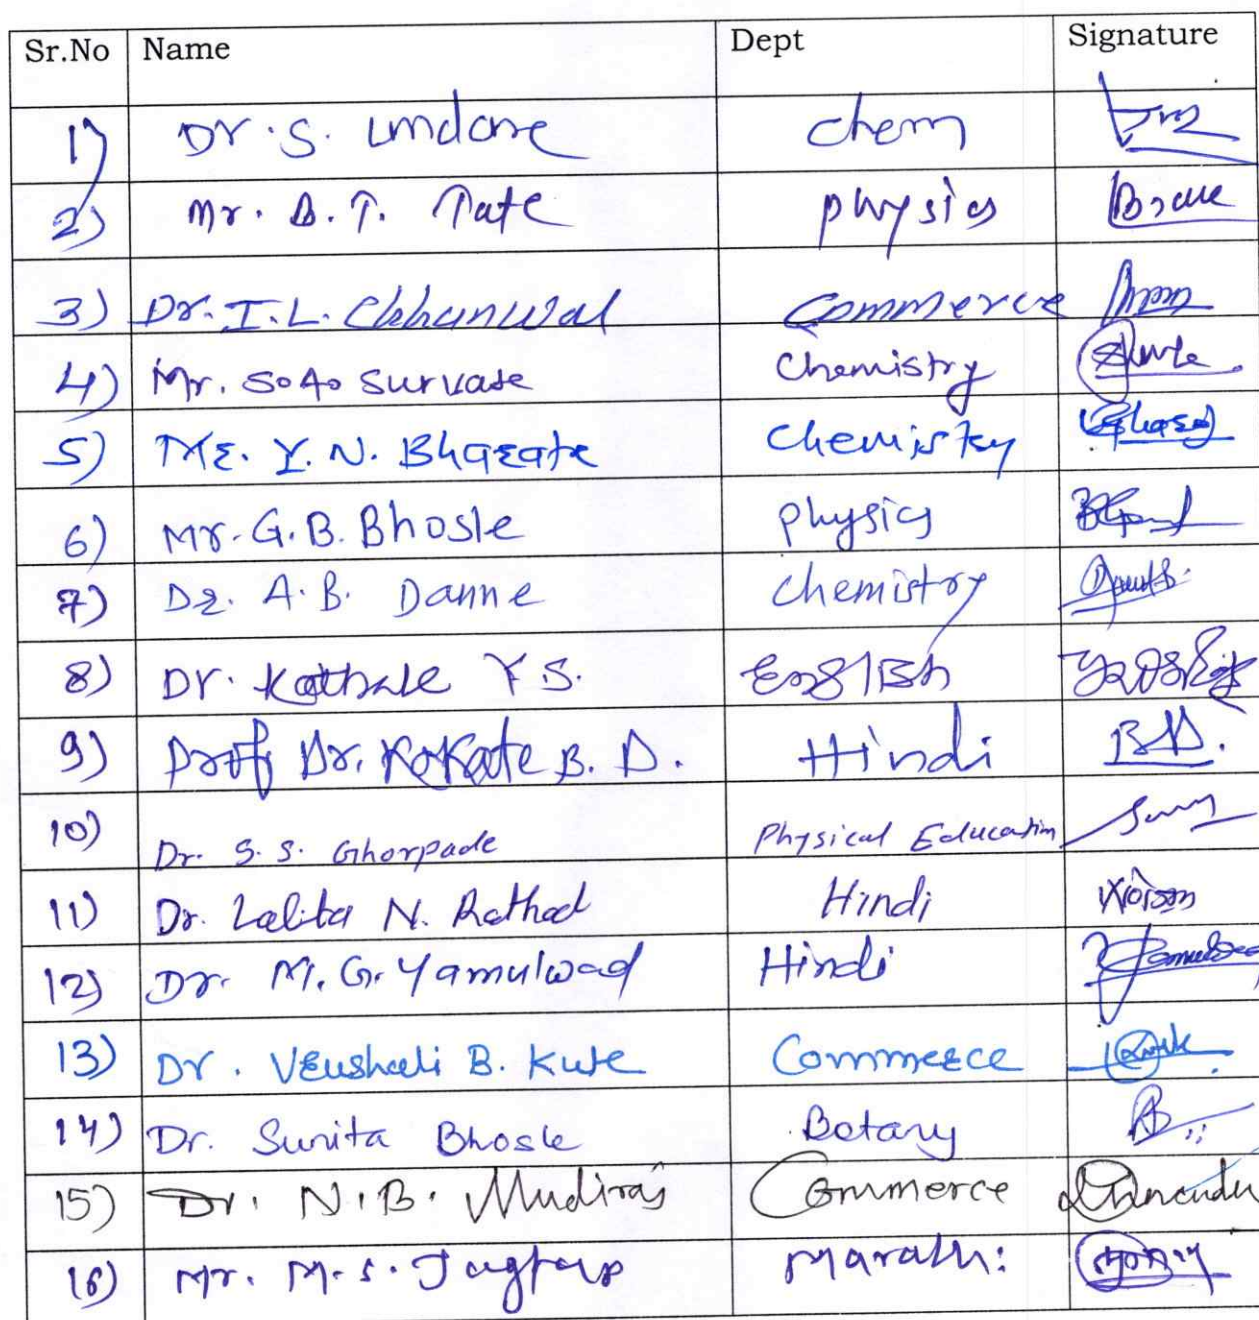 Sr.No Name Dept Signature
1) Dr. S. Undare Chem
2) Mr. B. T. Tate physics
3) Dr. I. L. Chhanwal Commerce
4) Mr. S. A. Survase Chemistry
5) Mr. Y. N. Bharate Chemistry
6) Mr. G. B. Bhosle physics
7) Dr. A. B. Danne Chemistry
8) Dr. Kathale Y. S. English
9) Prof Dr. Kokate B. D. Hindi B.D.
10) Dr. S. S. Ghorpade Physical Education
11) Dr. Lalita N. Rathod Hindi
12) Dr. M. G. Yamulwad Hindi
13) Dr. Vaushali B. Kute Commerce
14) Dr. Sunita Bhosle Botany
15) Dr. N. B. Mudiraj Commerce
16) Mr. M. S. Jagtap Marathi